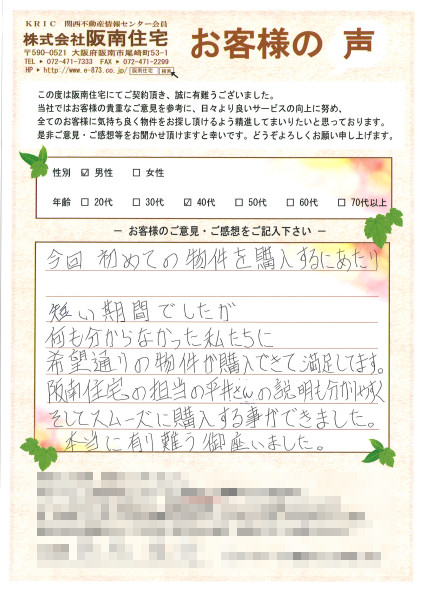 KRIC 関西不動産情報センター会員
株式会社阪南住宅
〒590-0521 大阪府阪南市尾崎町53-1
TEL ▶ 072-471-7333 FAX ▶ 072-471-2299
HP ▶ http://www.e-873.co.jp/ 阪南住宅 検索
お客様の 声
この度は阪南住宅にてご契約頂き、誠に有難うございました。
当社ではお客様の貴重なご意見を参考に、日々より良いサービスの向上に努め、
全てのお客様に気持ち良く物件をお探し頂けるよう精進してまいりたいと思っております。
是非ご意見・ご感想等をお聞かせ頂けますと幸いです。どうぞよろしくお願い申し上げます。
性別 ☑ 男性 □ 女性
年齢 □ 20代 □ 30代 ☑ 40代 □ 50代 □ 60代 □ 70代以上
― お客様のご意見・ご感想をご記入下さい ―
今回 初めての物件を購入するにあたり
短い期間でしたが
何も分からなかった私たちに
希望通りの物件が購入できて満足してます。
阪南住宅の担当の平井さんの説明も分かりやすく
そしてスムーズに購入する事ができました。
本当に有り難う御座いました。